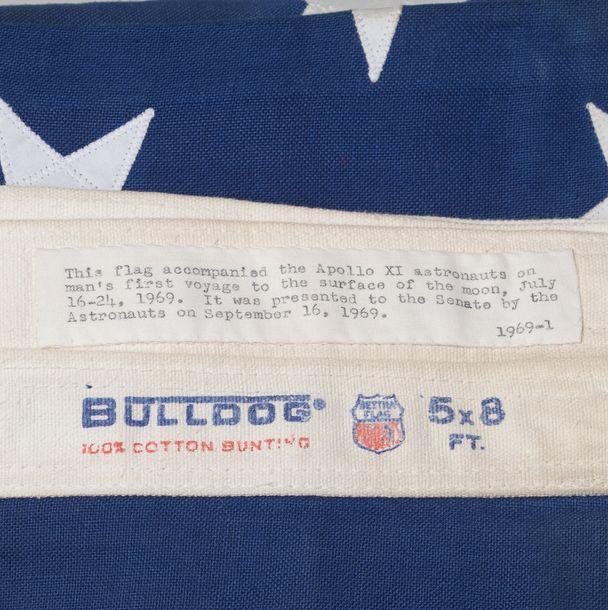 This flag accompanied the Apollo XI astronauts on
man's first voyage to the surface of the moon, July
16-24, 1969. It was presented to the Senate by the
Astronauts on September 16, 1969.
1969-1
BULLDOG®
100% COTTON BUNTING
FLAG
5x8
FT.